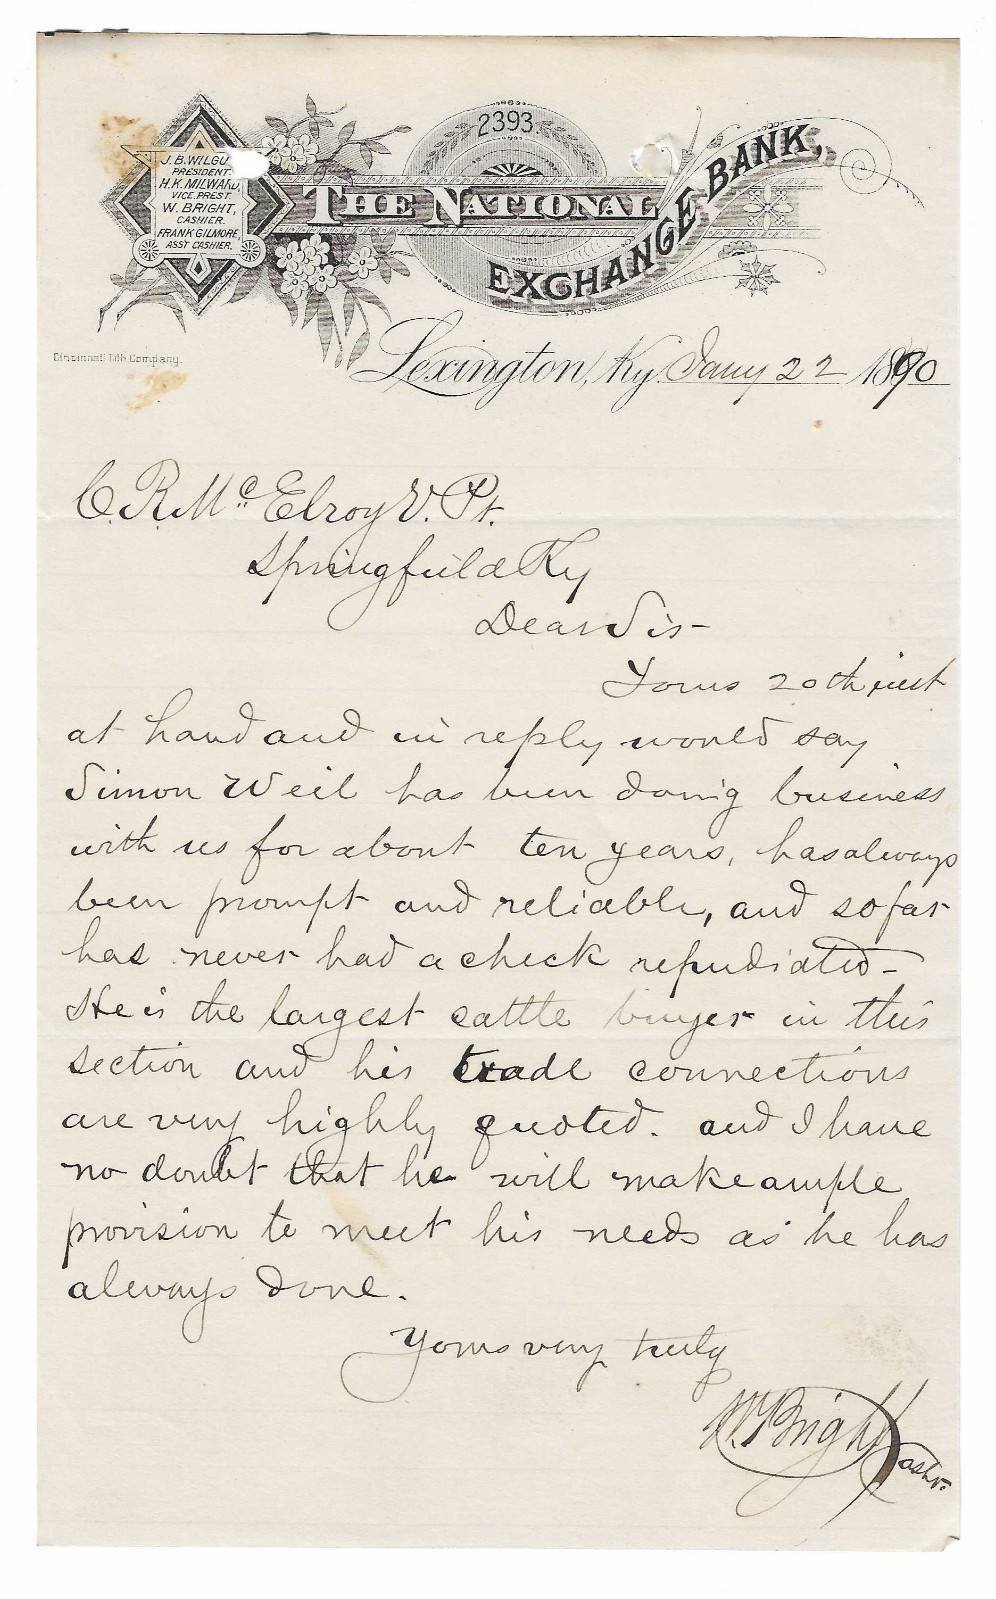 2393.
J. B. WILGU
PRESIDENT.
H. K. MILWARD,
VICE. PREST.
W. BRIGHT,
CASHIER.
FRANK GILMORE,
ASST CASHIER.
THE NATIONAL
EXCHANGE BANK,
Cincinnati Lith Company.
Lexington, Ky. Jany 22 1890
C. R. Mc Elroy V. Pt.
Springfield Ky
Dear Sir-
Yours 20th inst
at hand and in reply would say
Simon Weil has been doing business
with us for about ten years, has always
been prompt and reliable, and so far
has never had a check repudiated-
He is the largest cattle buyer in this
section and his trade connections
are very highly quoted. and I have
no doubt that he will make ample
provision to meet his needs as he has
always done.
Yours very truly
W. Bright Cashr.